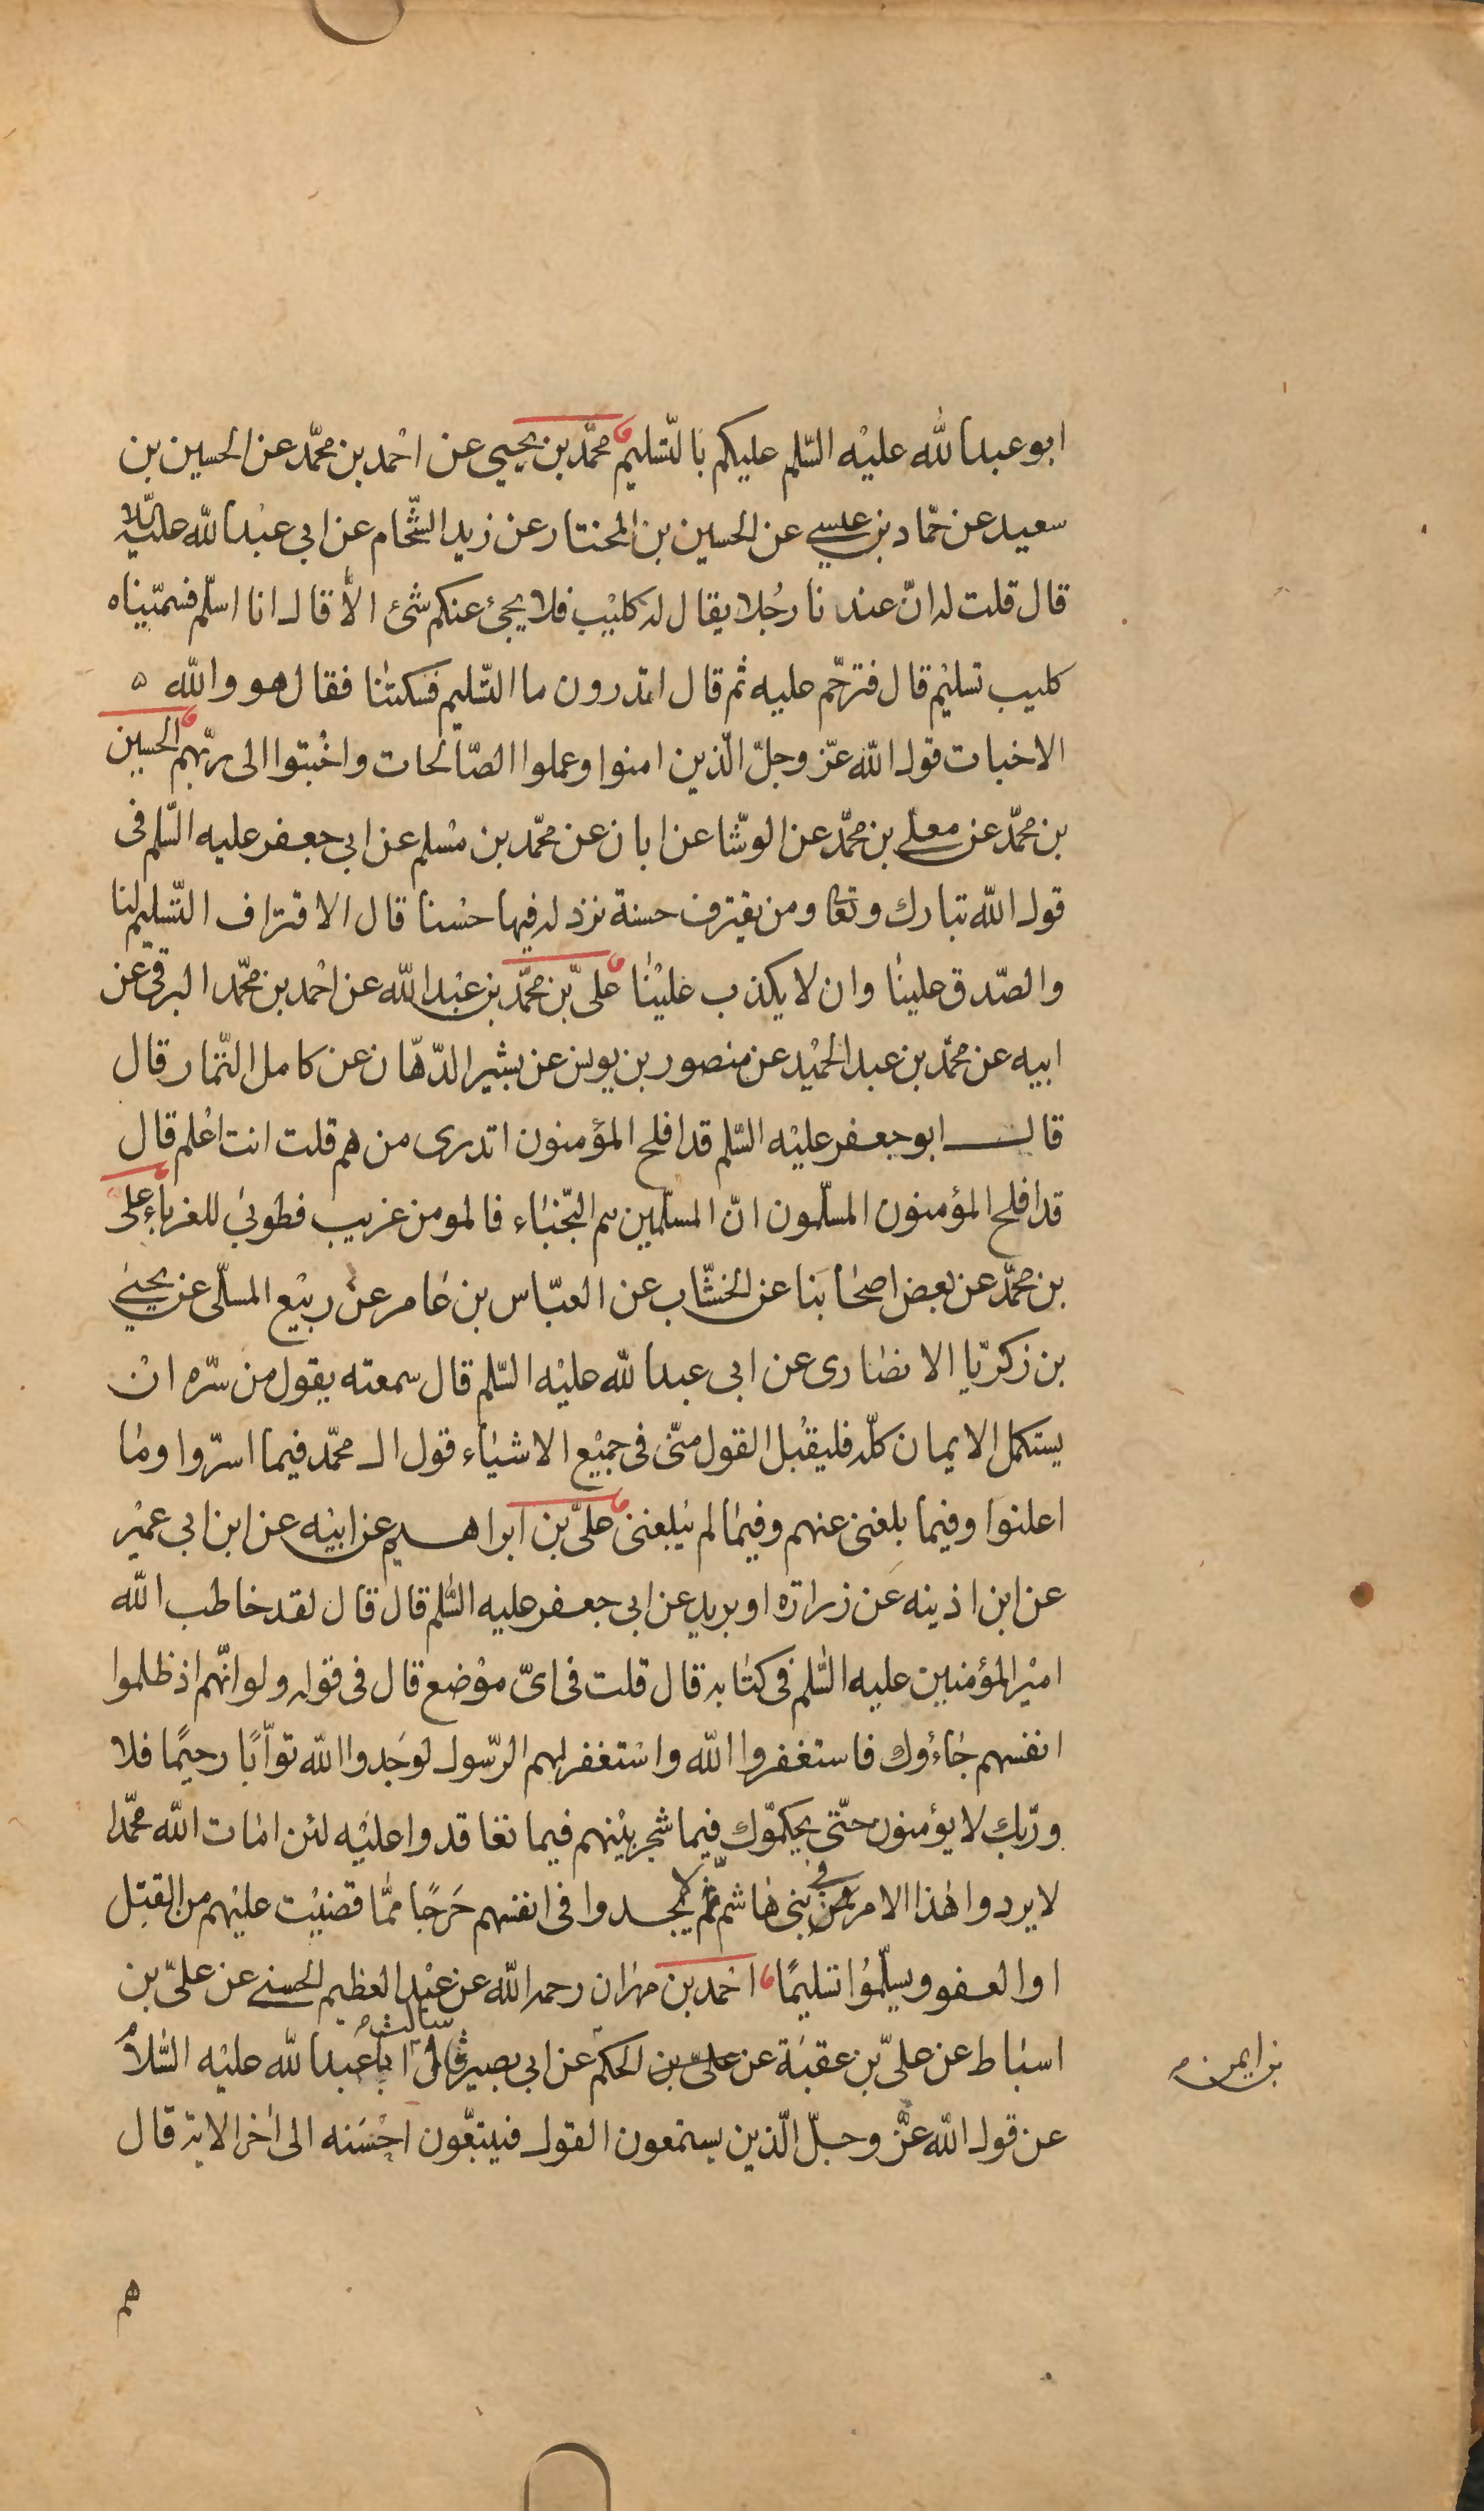 ابو عبد الله عليه السّلم عليكم بالتّسليم محمّد بن يحيى عن احمد بن محمّد عن الحسين بن
سعيد عن حمّاد بن عيسى عن الحسين بن المختار عن زيد الشّحّام عن ابى عبد الله عليه السلا
قال قلت له انّ عندنا رجُلا يقال له كليب فلا يجئ عنكم شئ الّا قال انا اسلّم فسمّيناه
كليب تسليم قال فترحّم عليه ثم قال اتدرون ما التّسليم فسكتنا فقال هو والله ٥
الاخبات قول الله عزّ وجلّ الّذين امنوا وعملوا الصّالحات واخبتوا الى ربّهم الحسين
بن محمّد عن معلى بن محمّد عن الوشّا عن ابان عن محمّد بن مسلم عن ابى جعفر عليه السّلم فى
قول الله تبارك وتعا ومن يقترف حسنة نزد له فيها حسنا قال الاقتراف التّسليم لنا
والصّدق علينا وان لا يكذب علينا علىّ بن محمّد بن عبد الله عن احمد بن محمّد البرقى عن
ابيه عن محمّد بن عبد الحميد عن منصور بن يونس عن بشير الدّهّان عن كامل التّمار قال
قال ابو جعفر عليه السّلم قد افلح المؤمنون اتدرى من هم قلت انت اعلم قال
قد افلح المؤمنون المسلّمون انّ المسلّمين هم النّجباء فالمومن غريب فطوبى للغرباء علىّ
بن محمّد عن بعض اصحابنا عن الخشّاب عن العبّاس بن عامر عن ربيع المسلّى عن يحيى
بن زكريّا الانصارى عن ابى عبد الله عليه السّلم قال سمعته يقول من سرّه ان
يستكمل الايمان كلّه فليقُبل القول منّى فى جميع الاشياء قول ال محمّد فيما اسرّوا وما
اعلنوا وفيما بلغنى عنهم وفيما لم يبلغنى علىّ بن ابراهيم عن ابيه عن ابن ابى عمير
عن ابن اذينه عن زرارة او بريد عن ابى جعفر عليه السّلم قال قال لقد خاطب الله
امير المؤمنين عليه السّلم فى كتابه قال قلت فى اىّ موضع قال فى قوله ولو انّهم اذ ظلموا
انفسهم جاءُوك فاستغفروا الله واستغفر لهم الرّسول لوَجَدوا الله توّابًا رحيمًا فلا
وربّك لا يؤمنون حتّى يحكموّك فيما شجر بينهم فيما تعاقدوا عليه لئن امات الله محمّدا
لا يردوا هذا الامر فى بنى هاشم ثمّ لا يجدوا فى انفسهم حَرَجًا ممّا قضيت عليهم من القتل
او العفو ويسلّموا تسليمًا احمد بن مهران رحمه الله عن عبد العظيم الحسنى عن علىّ بن
اسباط عن علىّ بن عقبة عن الحكم عن ابى بصير قال سالت ابا عبد الله عليه السّلام
بن ايمن
عن قول الله عزّ وجلّ الّذين يستمعون القول فيتبعّون احسَنه الى اخر الاية قال
هم